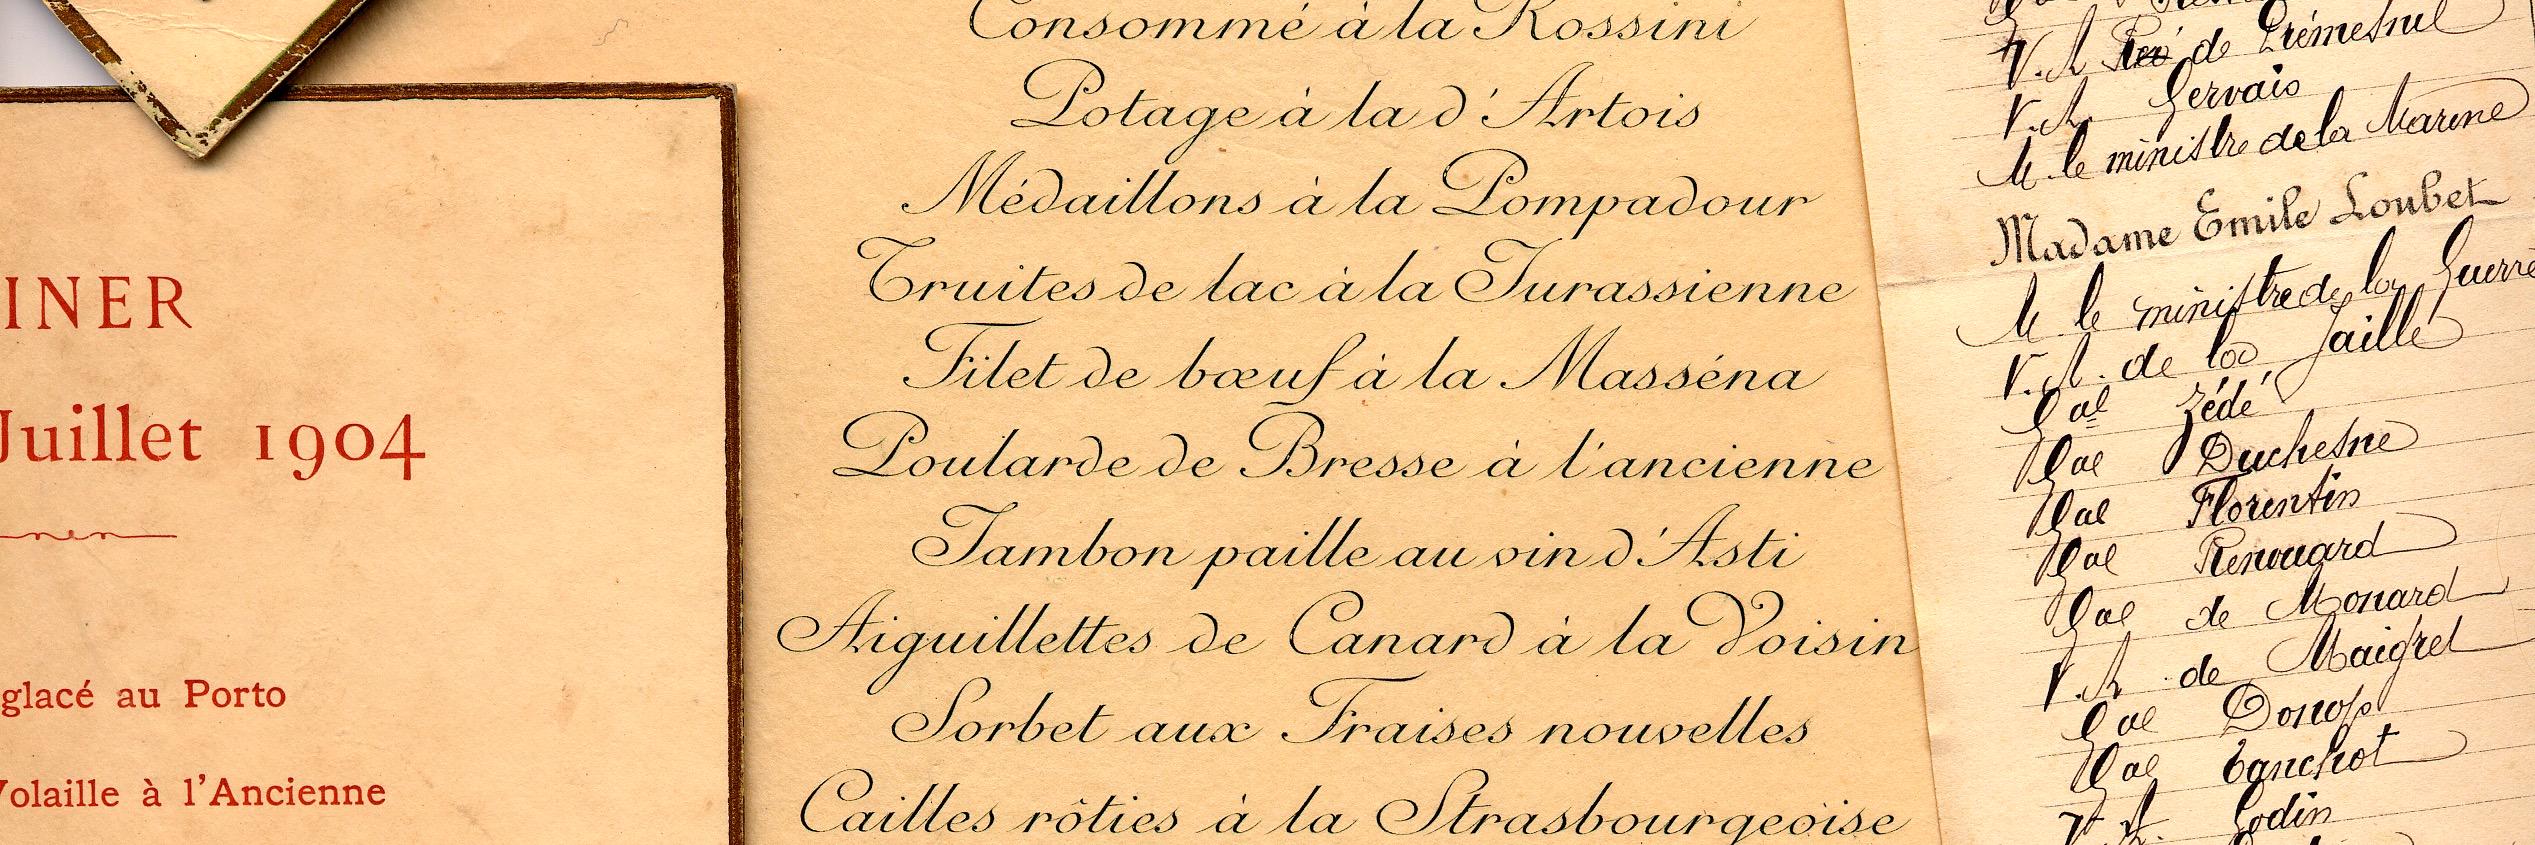 INER
Juillet 1904
glacé au Porto
Volaille à l'Ancienne
Consommé à la Rossini
Potage à la d'Artois
Médaillons à la Pompadour
Truites de lac à la Jurassienne
Filet de bœuf à la Masséna
Poularde de Bresse à l'ancienne
Jambon paille au vin d'Asti
Aiguillettes de Canard à la Voisin
Sorbet aux Fraises nouvelles
Cailles rôties à la Strasbourgeoise
V. A de Prémesnil
V. A. Gervais
M le ministre de la Marine
Madame Emile Loubet
M le ministre de la Guerre
V. A. de la Jaille
Gal Zédé
Gal Duchesne
Gal Florentin
Gal Renouard
Gal de Monard
V. A. de Maigret
Gal Donop
Gal Tanchot
Godin